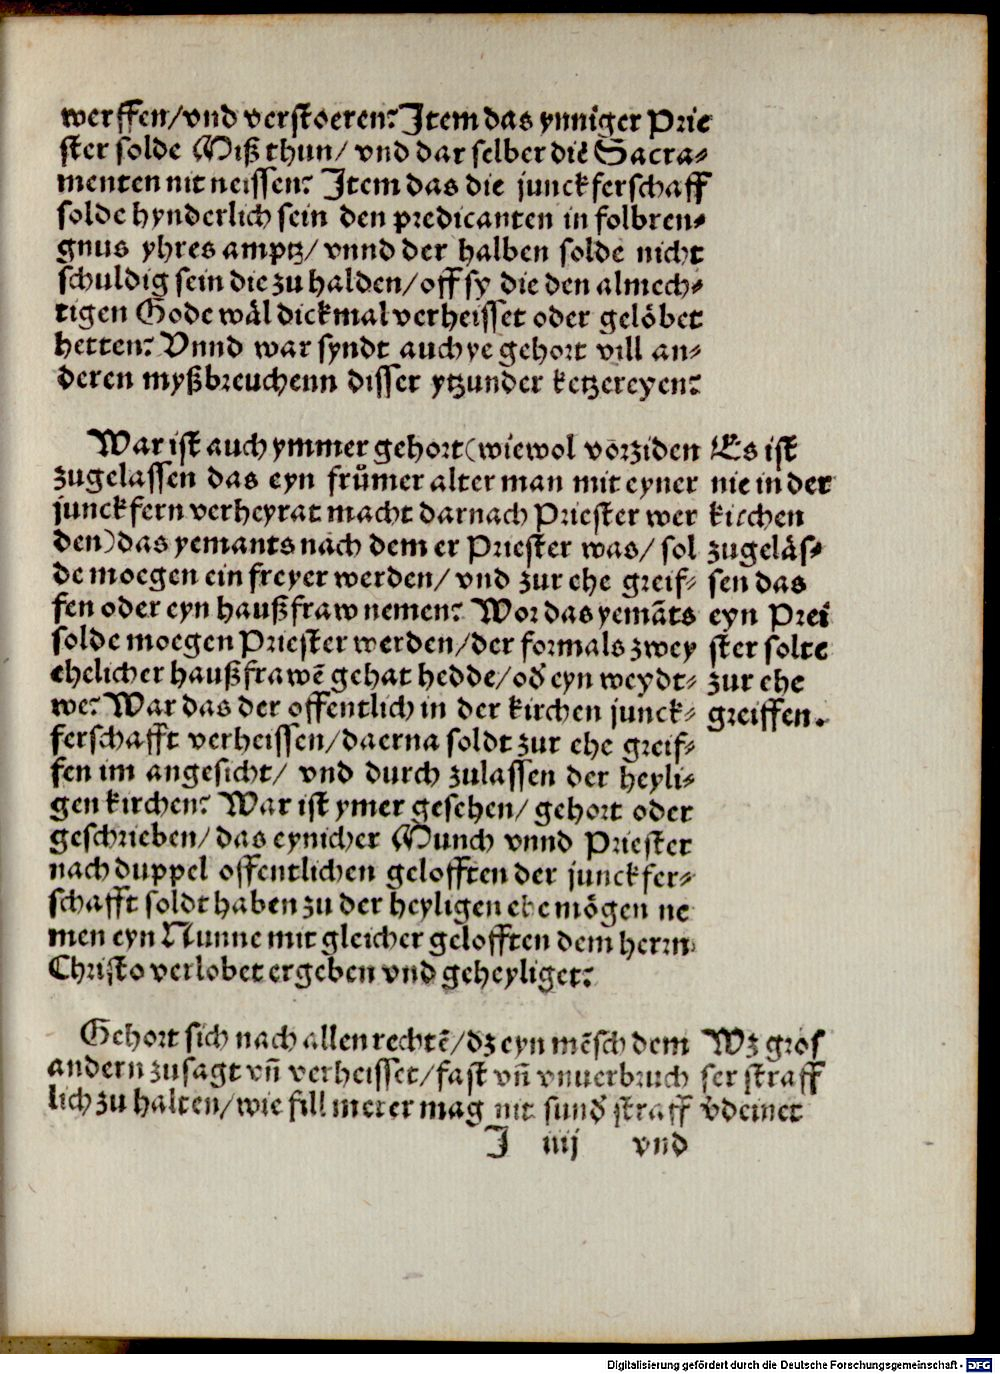 werffen/vnd verstoeren? Item das ynniger Prie
ster solde Miß thun/ vnd dar selber die Sacra-
menten nit neissen? Item das die junckferschaff
solde hynderlich sein den predicanten in folbren-
gnus yhres amptz/ vnnd der halben solde nicht
schuldig sein die zu halden/ off sy die den almech-
tigen Gode wäl dickmal verheisset oder gelöbet
hetten? Vnnd war syndt auch ye gehort vill an-
deren myßbreuchenn disser ytzunder ketzereyen?
War ist auch ymmer gehort (wiewol vorziden
zugelassen das eyn frůmer alter man mit eyner
junckfern verheyrat macht darnach Priester wer
den) das yemants nach dem er Priester was/ sol
de moegen ein freyer werden/ vnd zur ehe greif-
fen oder eyn haußfraw nemen? Wor das yemāts
solde moegen Priester werden/ der formals zwey
ehelicher haußfrawē gehat hedde/ oď eyn weydt-
we? War das der offentlich in der kirchen junck-
ferschafft verheissen/ daerna soldt zur ehe greif-
fen im angesicht/ vnd durch zulassen der heyli-
gen kirchen? War ist ymer gesehen/ gehort oder
geschrieben/ das eynicher Munch vnnd Priester
nach duppel offentlichen gelofften der junckfer-
schafft soldt haben zu der heyligen ehe mögen ne
men eyn Nunne mit gleicher gelofften dem herrn
Christo verlobet ergeben vnd geheyliget?
Es ist
nie in der
kirchen
zugeläs-
sen das
eyn Prei
ster solte
zur ehe
greiffen.
Gehort sich nach allen rechtē/ dz eyn mēsch dem
andern zusagt vn̄ verheisset/ fast vn̄ vnuerbruch
lich zu halten/ wie fill merer mag nit sunď straff
Wz gros
ser straff
vdeinet
I iiij vnd
Digitalisierung gefördert durch die Deutsche Forschungsgemeinschaft - DFG